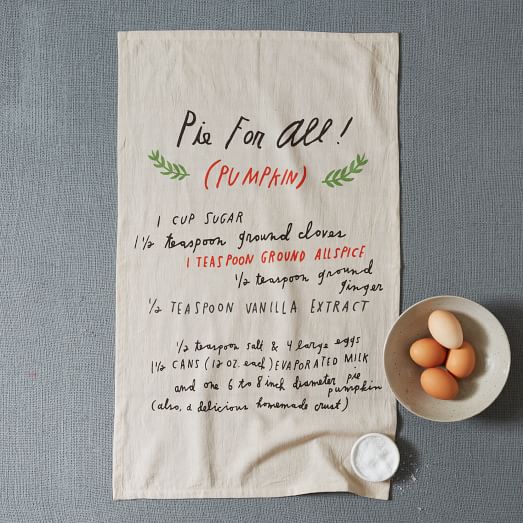 Pie For All!
(PUMPKIN)
1 CUP SUGAR
1 1/2 teaspoon ground cloves
1 TEASPOON GROUND ALLSPICE
1/2 teaspoon ground
ginger
1/2 TEASPOON VANILLA EXTRACT
1/2 teaspoon salt & 4 large eggs
1 1/2 CANS (12 OZ. each) EVAPORATED MILK
and one 6 to 8 inch diameter pie
pumpkin
(also, a delicious homemade crust)